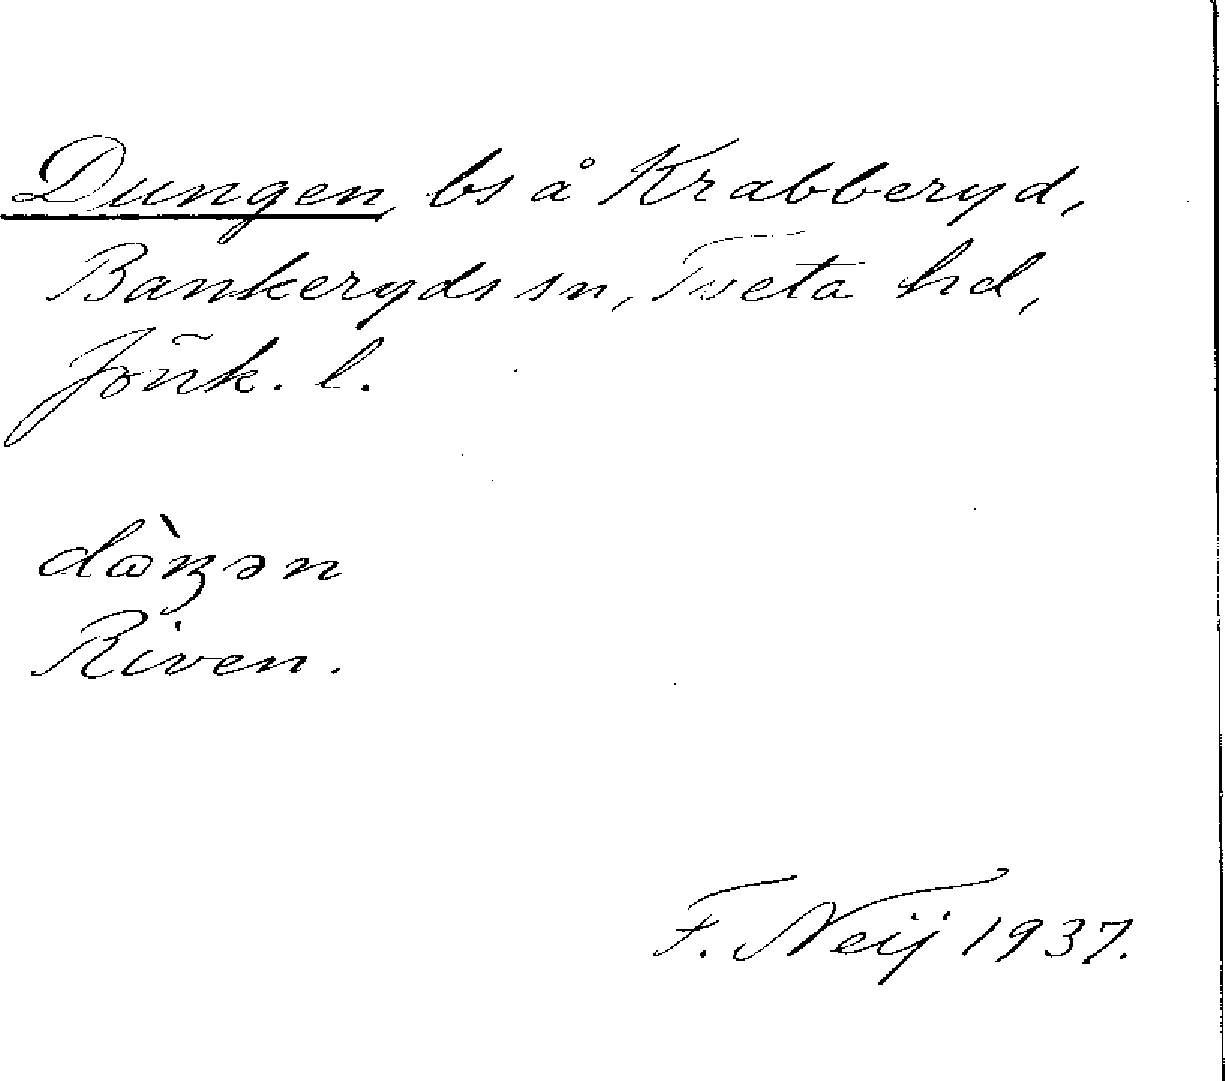 Dungen, bs å Krabberyd,
Bankeryds sn, Tveta hd,
Jönk. l.
Riven.
F. Neij 1937.